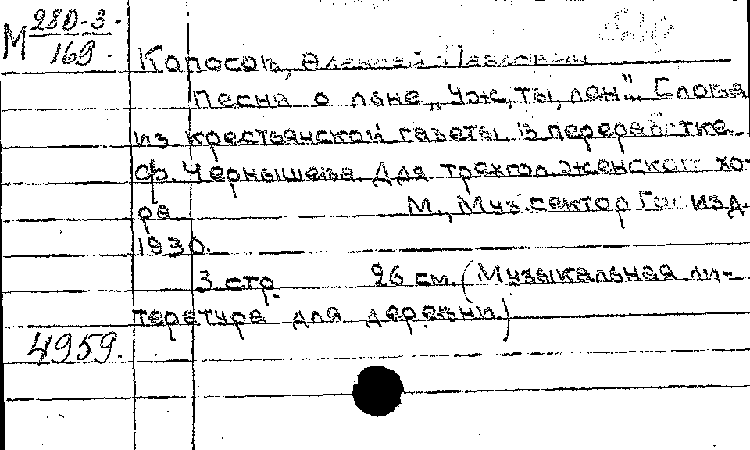 М 28D-3
169
Колосов, Алексей Павлович
Песня о лене „Уж, ты, лен". Слова
из крестьянской газеты в переработке
Ф. Чернышева. Для трехгол. женского хо-
ра М., Муз.сектор Гос изд.
1930.
3 стр. 26 см. (Музыкальная ли-
тература для деревни.)
4959.